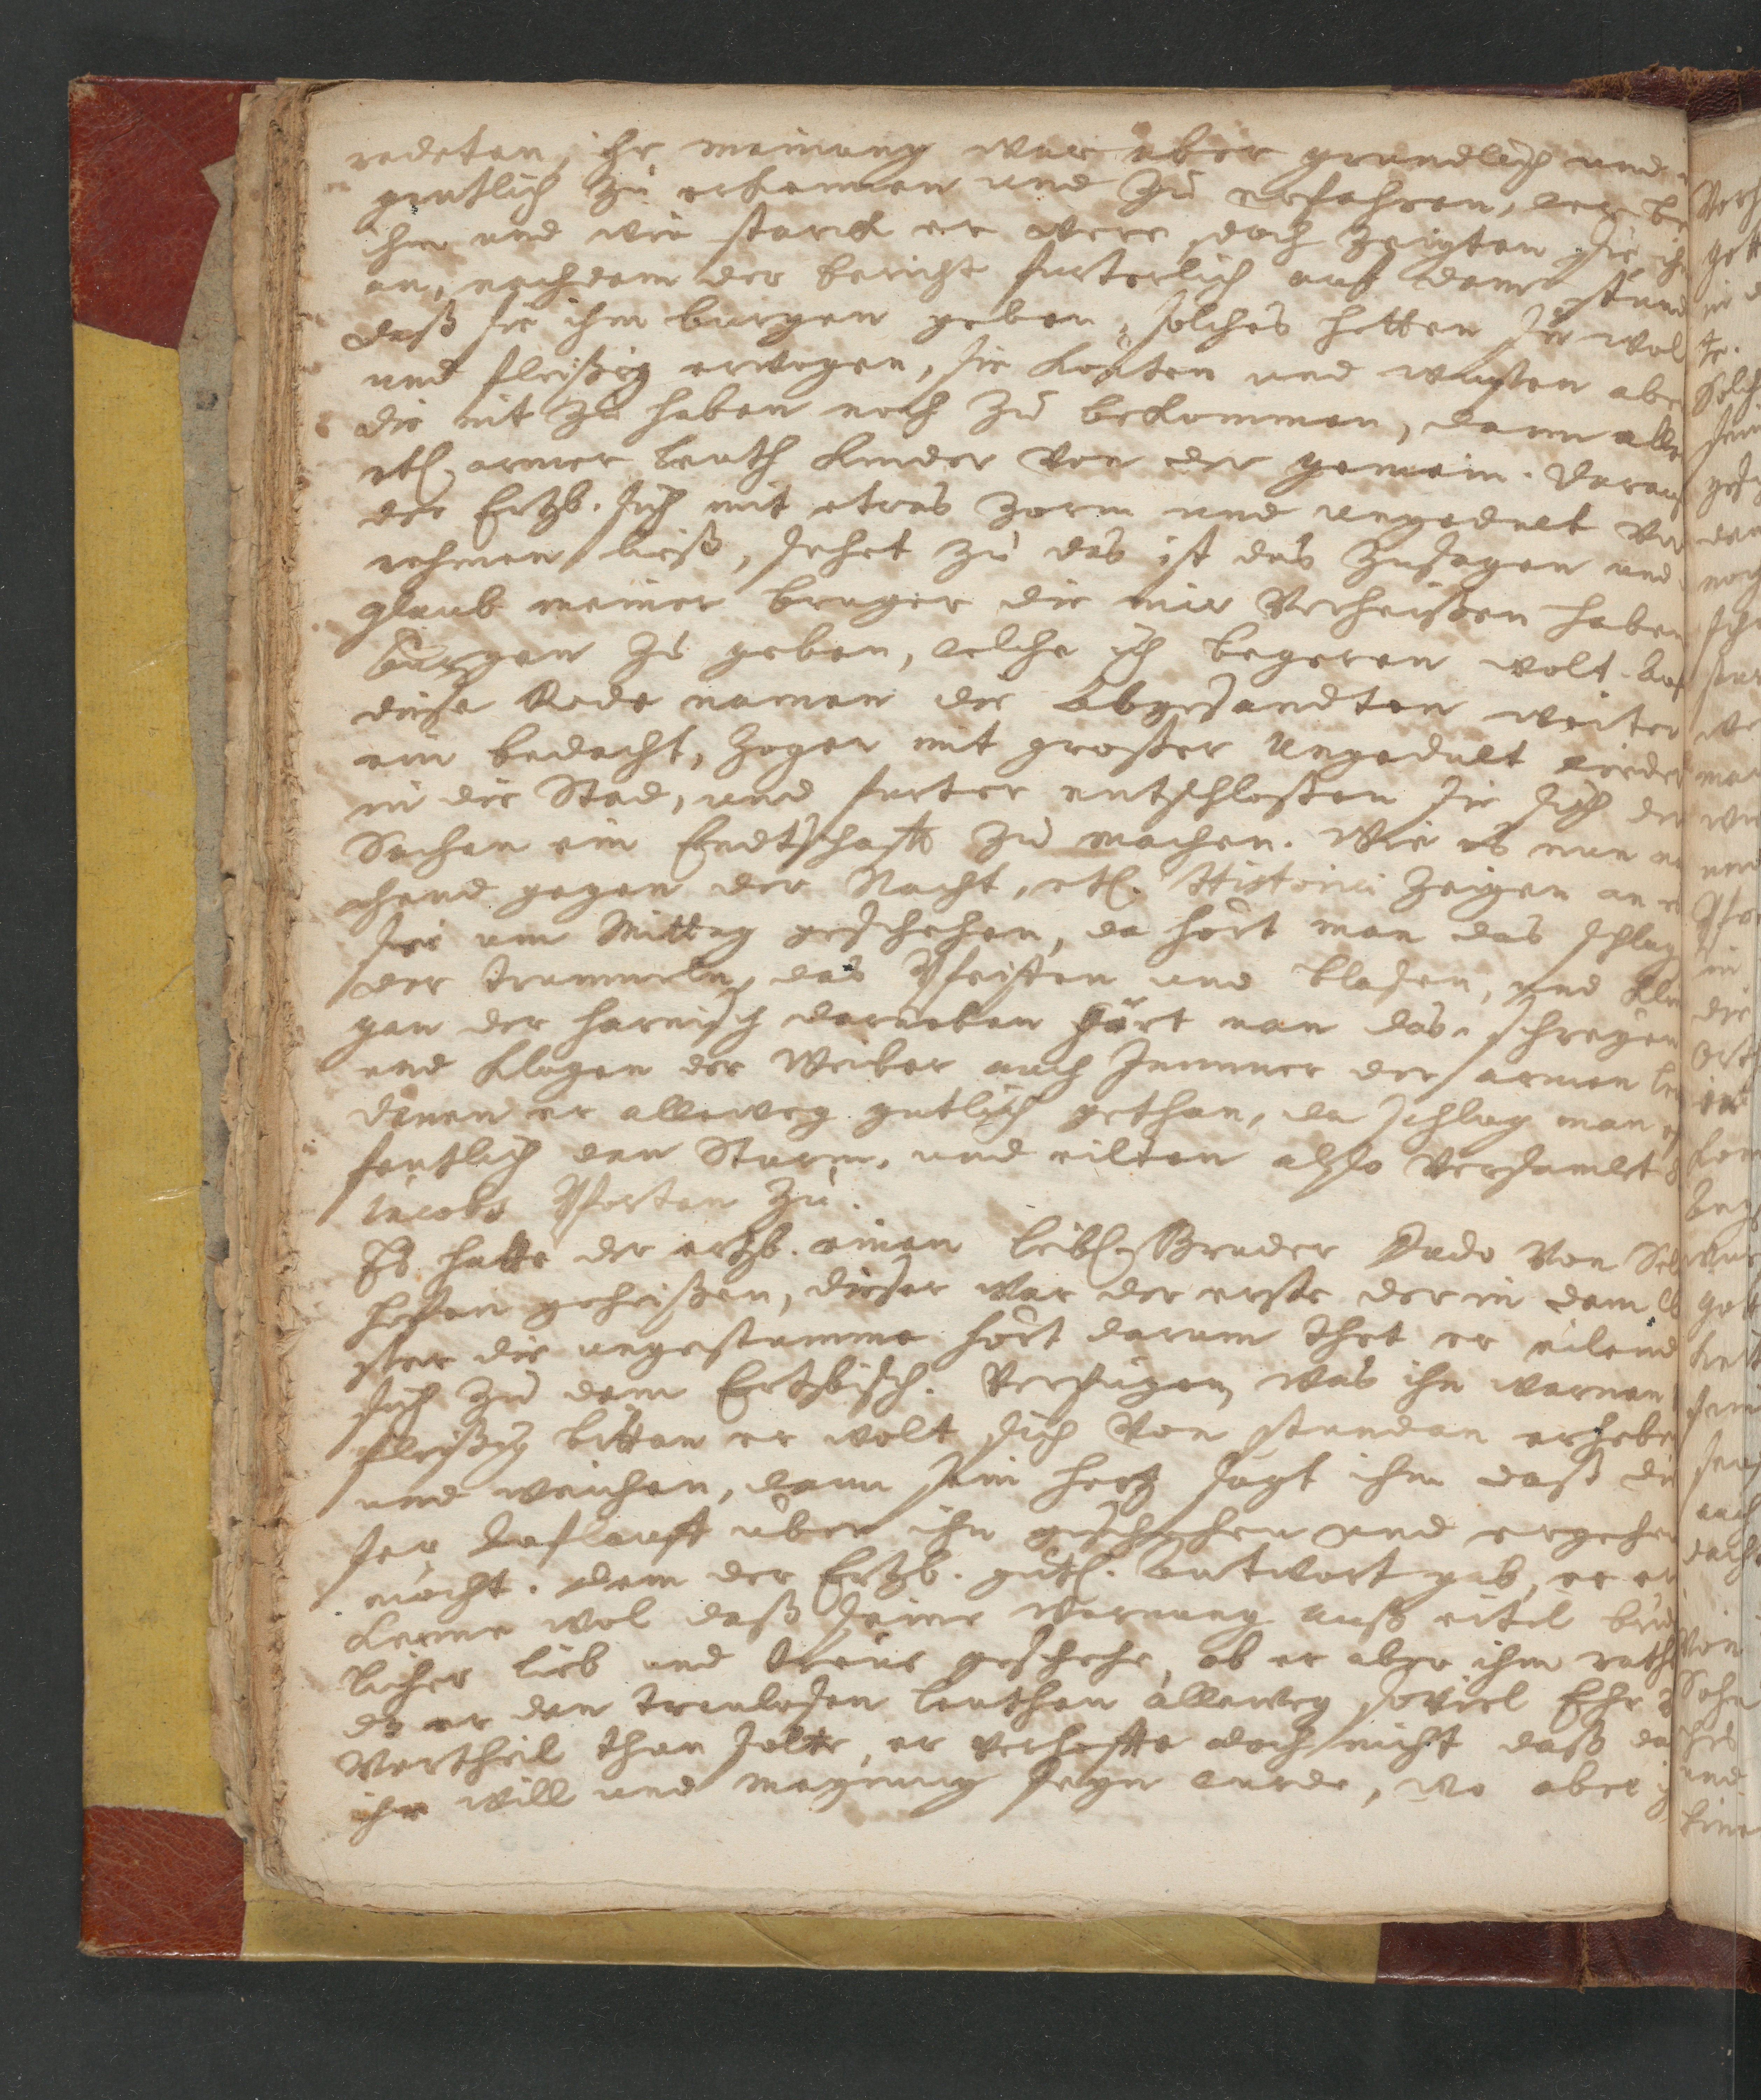 redeten, ihr meinung war aber grundlich und
gentlich zu erkennen und zu erfahren, wer be
ihm und wie starck er were, doch zeigten sie ihm
an, nachdem der bericht furterlich auf dem stund
daß sie ihm burgen geben, solches hetten sie wol
und fleißig erwogen, sie konten und wusten abe
die nit zu haben noch zu bekommen, dann alle
etl. armer leuth kinder von der gemein. Darauf
der Ertzb. sich mit etwas zorn und ungedult ver
nehmen ließ, sehet zu das ist das zusagen und
glaub meiner burger die mir verheißen haben
burgen zu geben, welche ich begeren wolt. Auf
diese Rede namen die Abgesandten weiter
ein bedacht, zogen mit großer Ungedult wieder
in die Stad, und furter entschloßen sie sich der
Sachen ein Endtschafft zu machen. Wie es nun na
chend gegen der Nacht, etl. Historici zeigen an es
sei um Mittag geschehen, da hört man das schlag
der trummeln, das Pfeiffen und blasen, und klin
gen der harnisch darneben hört man das schreyen
und klagen der Weiber auch Jammer der armen leu
denen er alleweg gutlich gethan, da schlug man of
fentlich den Sturm, und eilten also versamlet S
Jacobs Pforten zu.
Es hatte der ertzb. einen leibl. Bruder Dudo von Sel
hofen geheißen, dieser war der erste der in dem Clo
ster die ungestumme hört darum thet er eilend
sich zu dem Ertzbisch. verfügen, was ihn warnen
fleißig bitten er wolt sich von stundan erheben
und weichen, dann sein hertz sagt ihm daß die
ser Auflauff über ihn geschehen und ergehen
möcht. dem der Ertzb. gütl. Antwort gab, er er
kenne wol daß seine warnung auß eitel brud
licher lieb und treue geschehe, ob er aber ihm rathe
dz er den treulosen leuthen alleweg soviel Ehr u
Vortheil than solte, er verhoffte doch nicht daß da
ihr will und meynung seyn wurde, wo aber ih